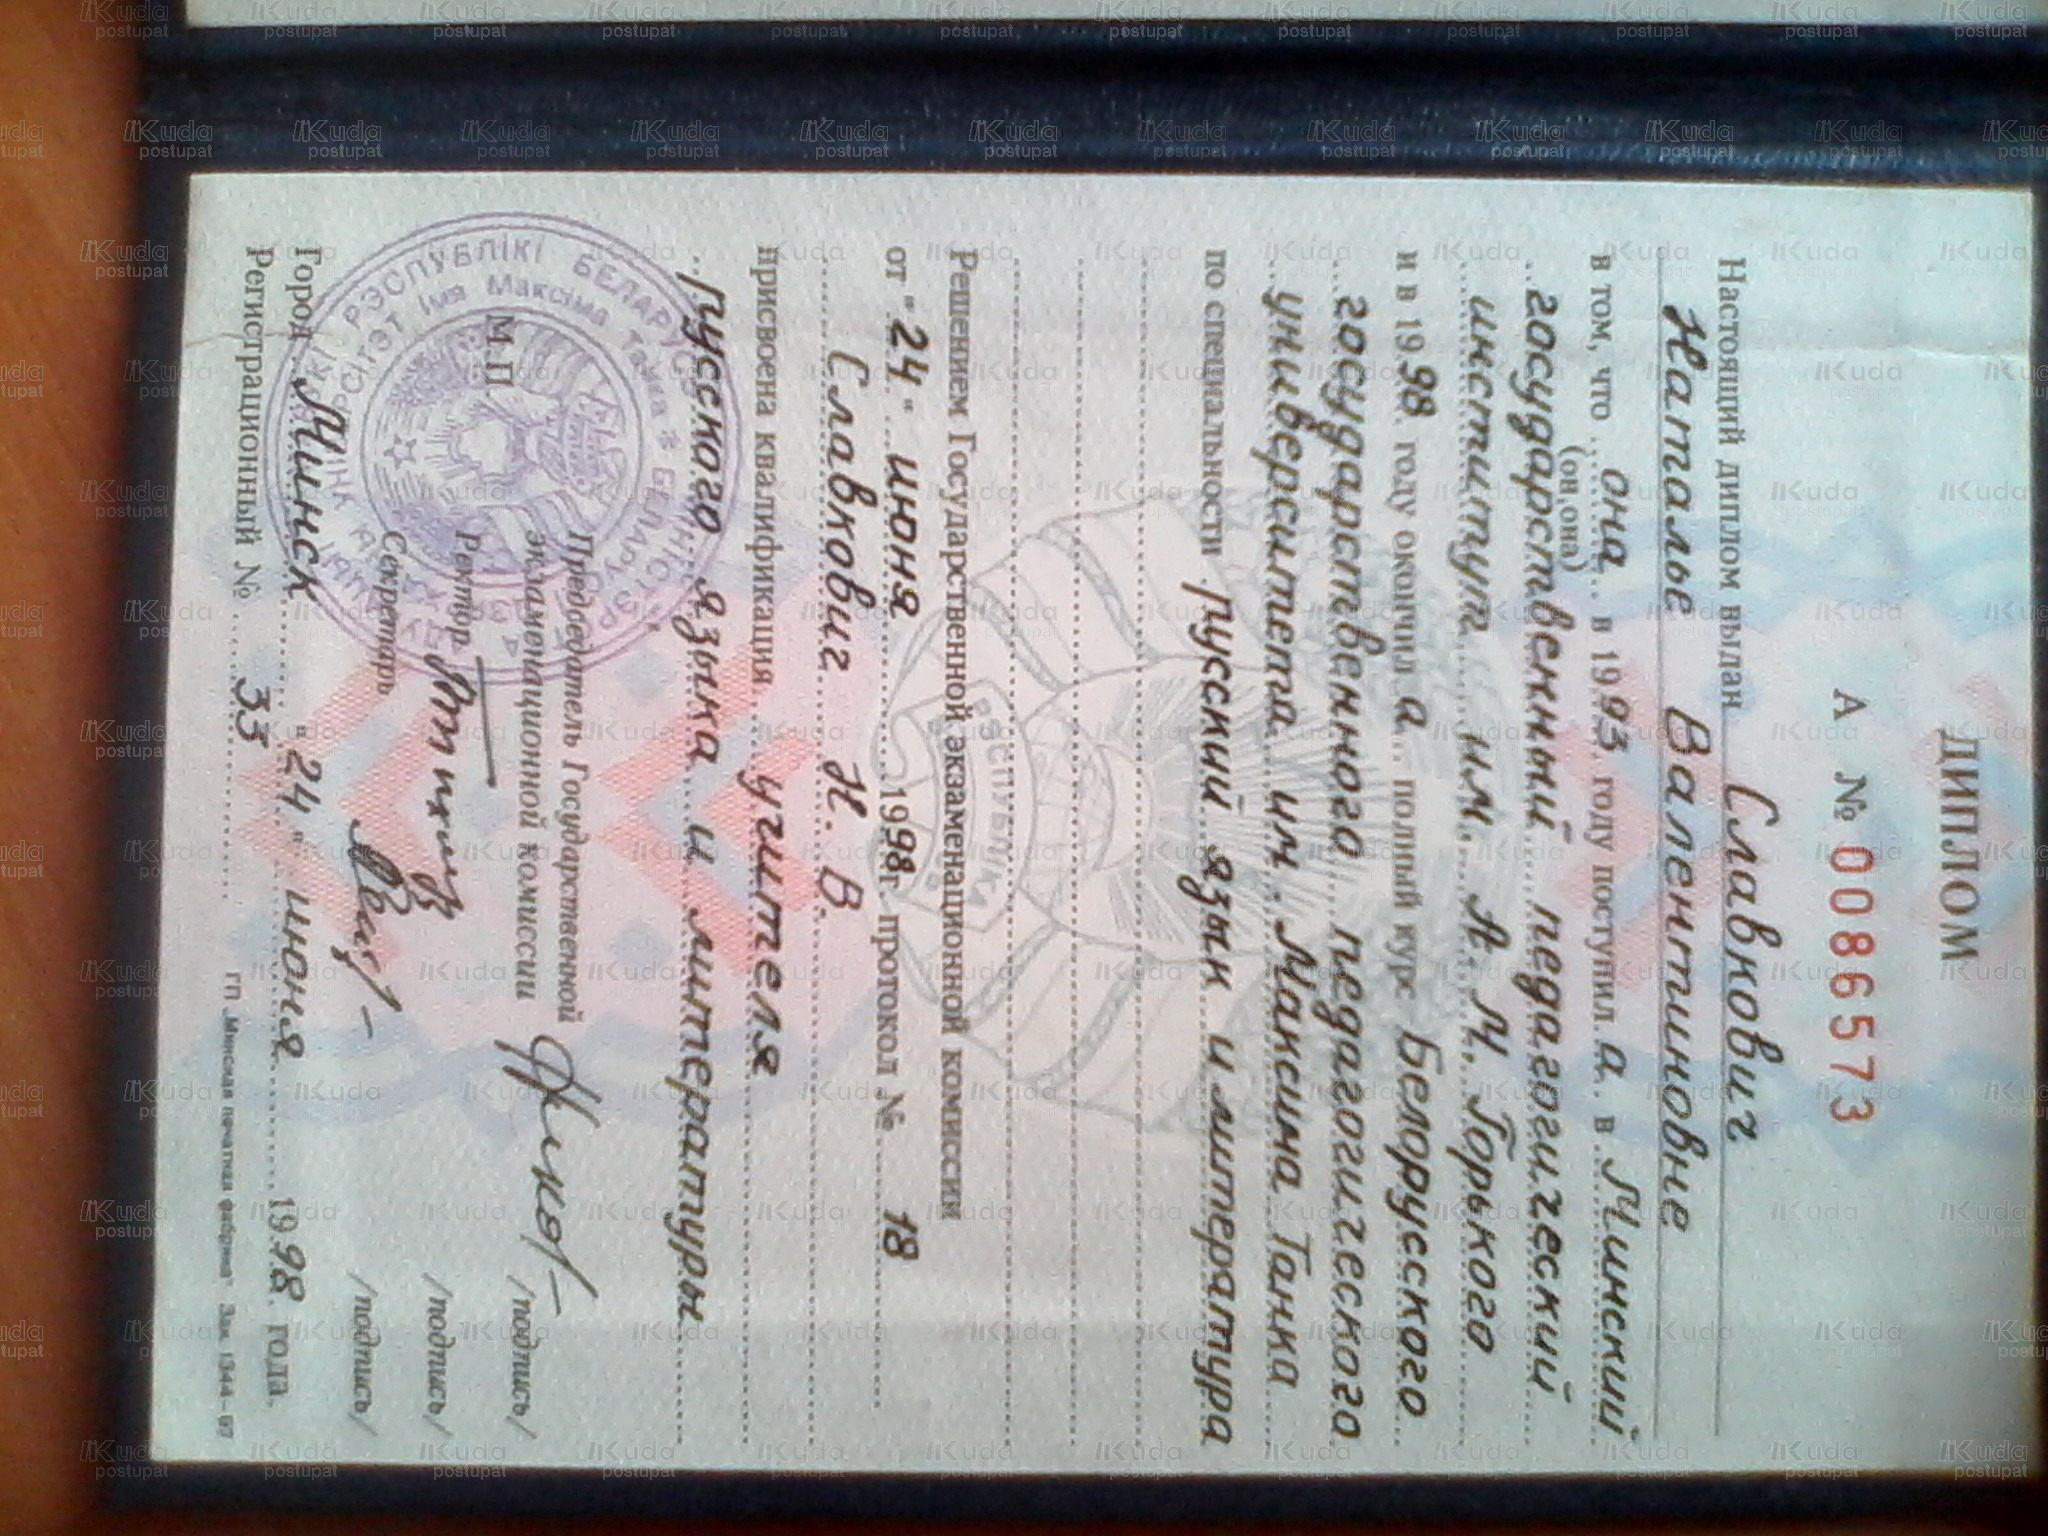 ДИПЛОМ
А № 0086573
Настоящий диплом выдан Славкович
Наталье Валентиновне
в том, что она в 1993 году поступил а в Минский
(он, она)
государственный педагогический
институт им. А. М. Горького
и в 1998 году окончил а полный курс Белорусского
государственного педагогического
университета им. Максима Танка
по специальности русский язык и литература
Решением Государственной экзаменационной комиссии
от "24" июня 1998 г. протокол № 18
Славкович Н. В.
присвоена квалификация учителя
русского языка и литературы
Председатель Государственной
экзаменационной комиссии /подпись/
М.П.
Ректор /подпись/
Секретарь /подпись/
Город Минск "24" июня 1998 года.
Регистрационный № 33
ГП „Минская печатная фабрика" Зак. 1344-97
РЭСПУБЛІКІ БЕЛАРУСЬ
імя Максіма Танка * БЕЛАРУС
РЭСПУБЛІКА
Kuda
postupat